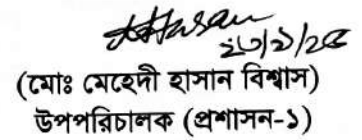 ২৩/১/২৫
(মোঃ মেহেদী হাসান বিশ্বাস)
উপপরিচালক (প্রশাসন-১)